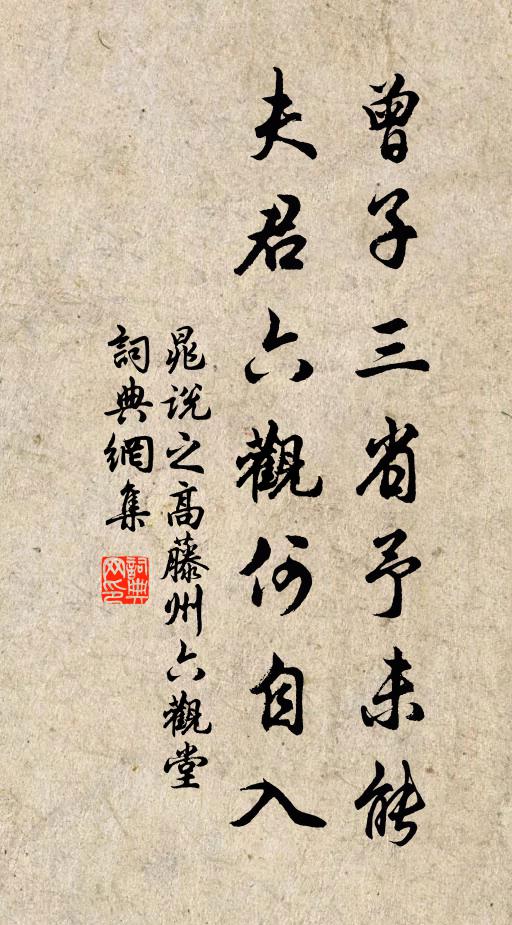 曾子三省予未能
夫君六觀何自入
晁說之高藤州六觀堂
詞典網集
詞典網印